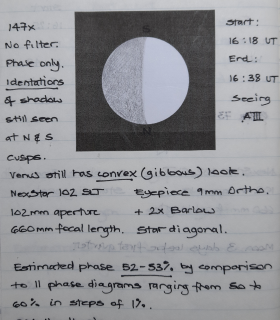 147x
No filter.
Phase only.
Identations
& shadow
still seen
at N & S
cusps.
S
N
Start:
16:18 UT
End:
16:38 UT
Seeing
AIII
Venus still has convex (gibbous) look.
NexStar 102 SLT Eyepiece 9mm Ortho.
102mm aperture + 2x Barlow
660mm focal length. Star diagonal.
Estimated phase 52-53% by comparison
to 11 phase diagrams ranging from 50 to
60% in steps of 1%.